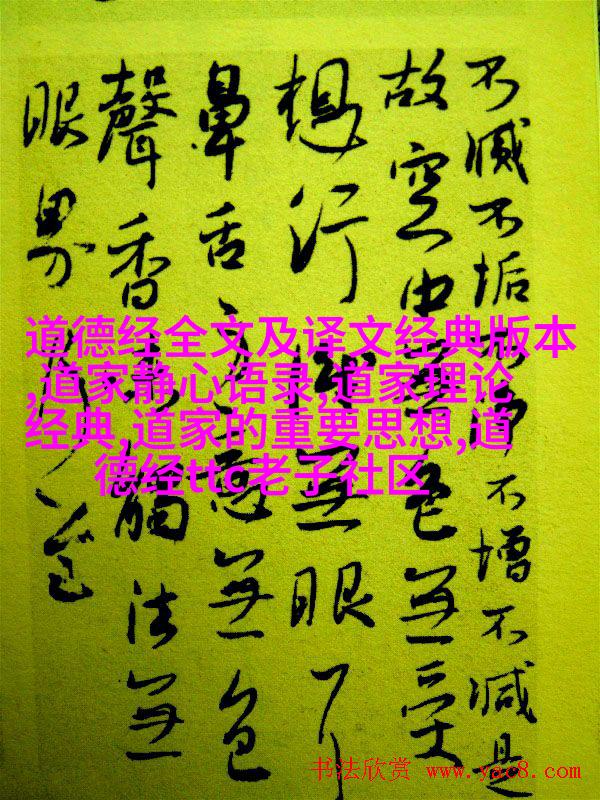 不滅不垢不淨不增不減是
故空中無色無受
想行識無眼耳
鼻舌身意無色
聲香味觸法無
眼界
道德经全文及译文经典版本
,道家静心语录,道家理论
经典,道家的重要思想,道
德经ttc老子社区
书法欣赏 www.yac8.com